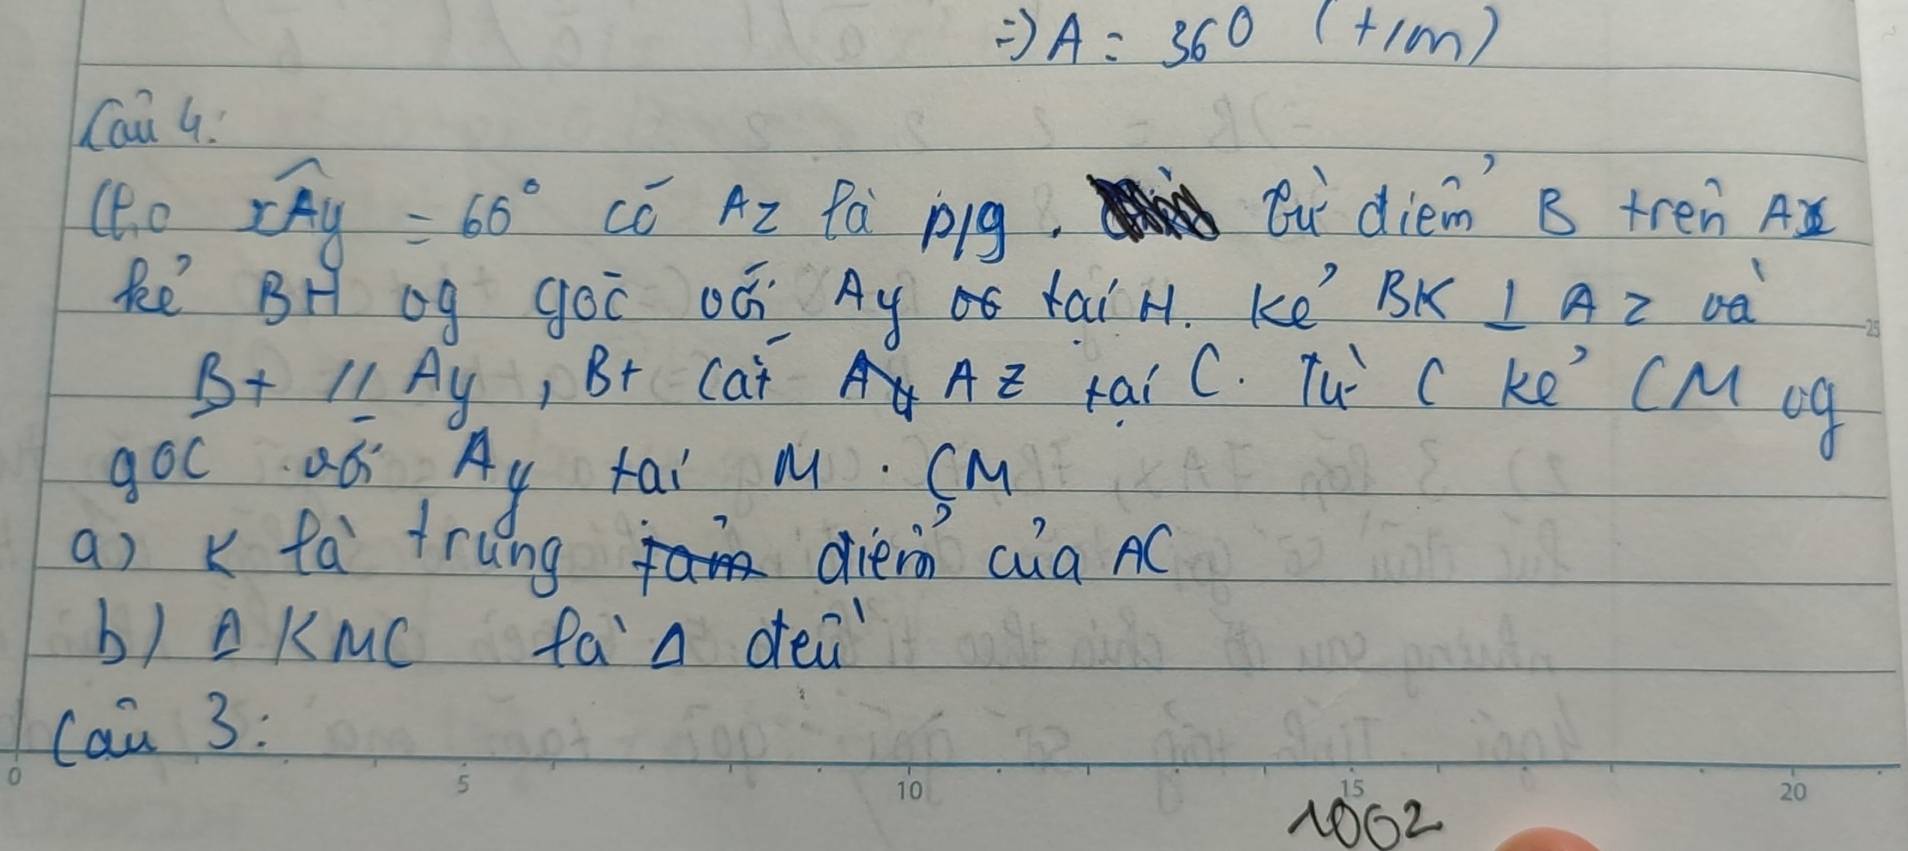 =) A = 360 (t/m)
Câu 4:
Cho xAy = 60° có Az là p/g. từ điểm B trên Ax
kẻ BH vg góc với Ay tại H. kẻ BK ⊥ Az và
Bt // Ay, Bt cắt Az tại C. Từ C kẻ CM vg
góc với Ay tại M. CM
a) K là trung điểm của AC
b) Δ KMC là Δ đều
Câu 3:
0 5 10 15 20
25
1002